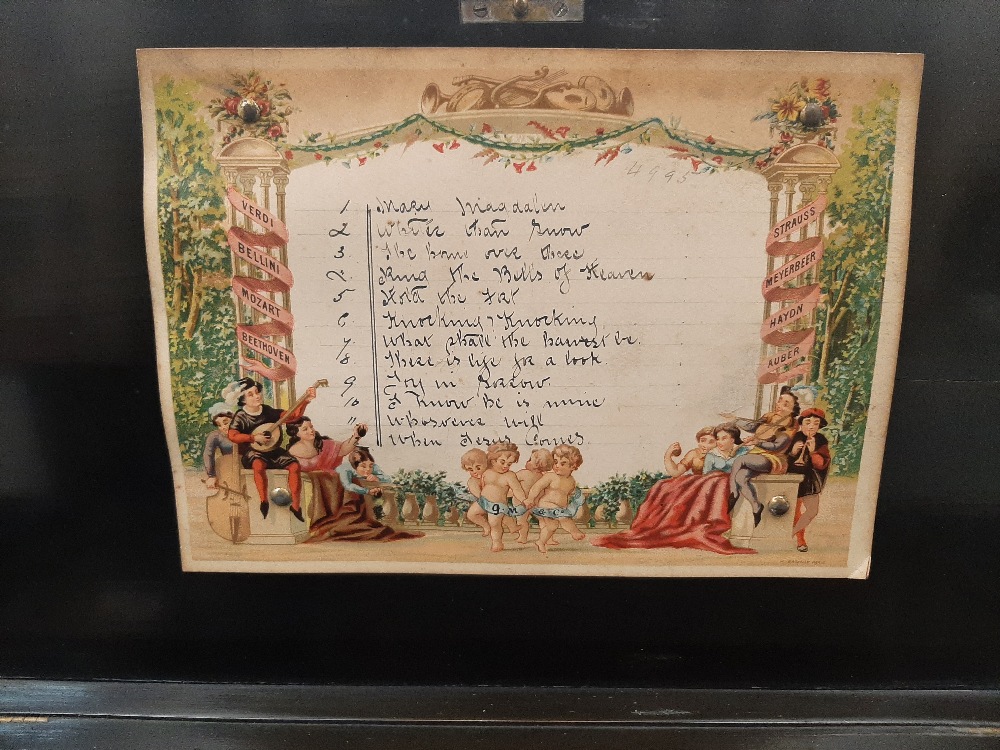 4995
VERDI
BELLINI
MOZART
BEETHOVEN
STRAUSS
MEYERBEER
HAYDN
AUBER
1 Mary Magdalen
2 Whiter than Snow
3 The home over there
4 Ring the Bells of Heaven
5 Hold the Fort
6 Knocking, Knocking
7 What shall the harvest be.
8 There is life for a look.
9 Joy in Sorrow
10 I Know he is mine
" Whosoever will
When Jesus Comes.